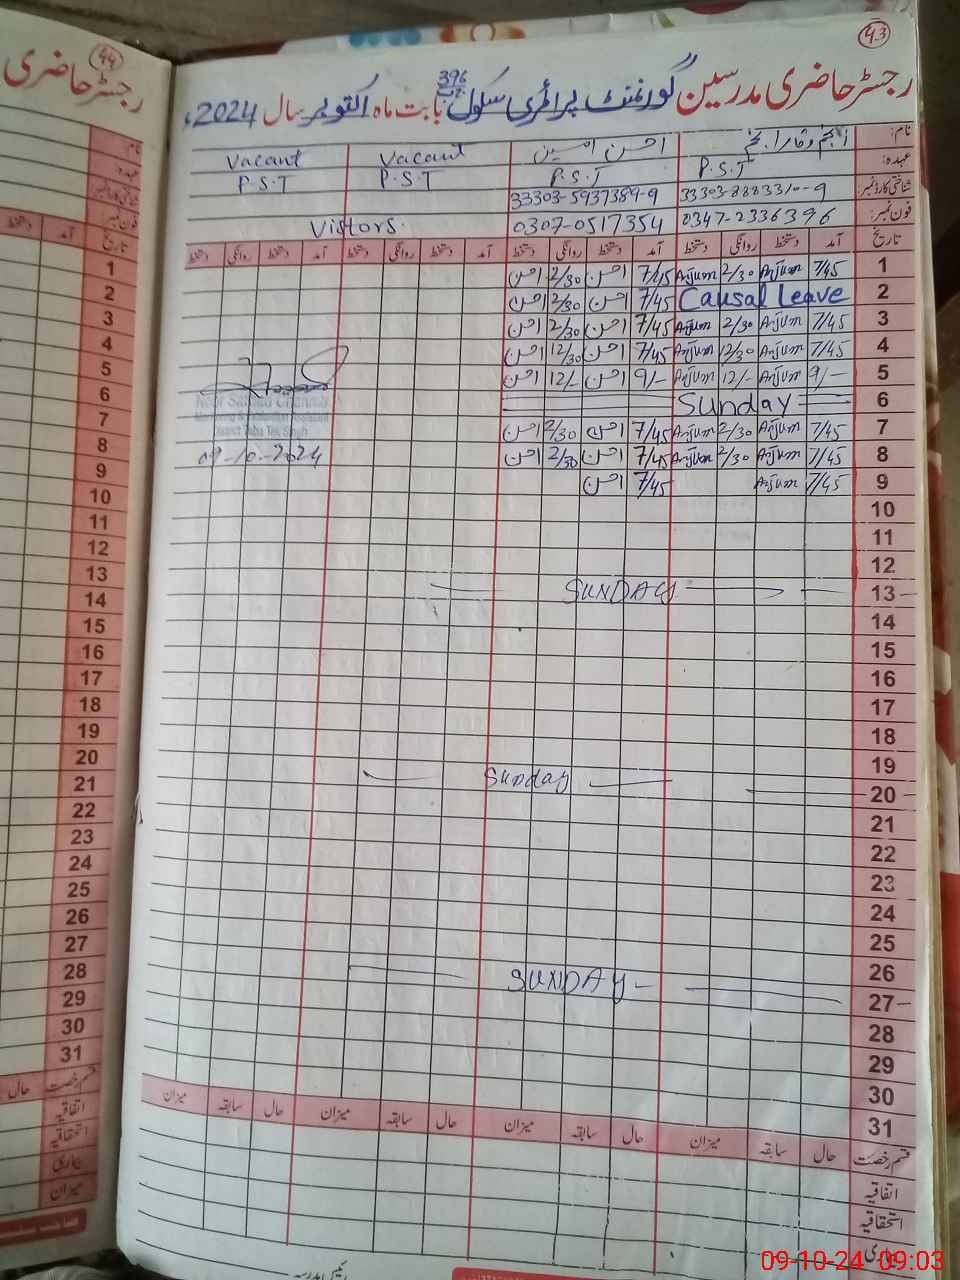 43
رجسٹر حاضری مدرسین گورنمنٹ پرائمری سکول 396 بابت ماہ اکتوبر سال 2024ء
نام: انجم وقار انجم احسن امین Vacant Vacant
عہدہ: P.S.T P.S.T P.S.T P.S.T
شناختی کارڈ نمبر: 33303-5937389-9
فون نمبر: 0347-2336396 0307-0517354 Vistors.
تاریخ آمد دستخط روانگی دستخط آمد دستخط روانگی دستخط آمد دستخط روانگی دستخط آمد دستخط روانگی دستخط
1 7/45 Anjum 2/30 Anjum 7/45 احسن 2/30 احسن
2 Causal Leave 7/45 احسن 2/30 احسن
3 7/45 Anjum 2/30 Anjum 7/45 احسن 2/30 احسن
4 7/45 Anjum 12/30 Anjum 7/45 احسن 12/30 احسن
5 9/- Anjum 12/- Anjum 9/- احسن 12/- احسن
6 Sunday
7 7/45 Anjum 2/30 Anjum 7/45 احسن 2/30 احسن
8 7/45 Anjum 2/30 Anjum 7/45 احسن 2/30 احسن
09-10-2024
9 7/45 Anjum 7/45 احسن
10
11
12
13 SUNDAY
14
15
16
17
18
19
20 Sunday
21
22
23
24
25
26
27 SUNDAY
28
29
30
31
قسم رخصت حال سابقہ میزان حال سابقہ میزان حال سابقہ میزان حال سابقہ میزان
اتفاقیہ
استحقاقیہ
بیماری
44
رجسٹر حاضری
نام:
عہدہ:
شناختی کارڈ نمبر:
فون نمبر:
تاریخ آمد دستخط
1
2
3
4
5
6
7
8
9
10
11
12
13
14
15
16
17
18
19
20
21
22
23
24
25
26
27
28
29
30
31
قسم رخصت حال
اتفاقیہ
استحقاقیہ
بیماری
میزان
09-10-24 09:03